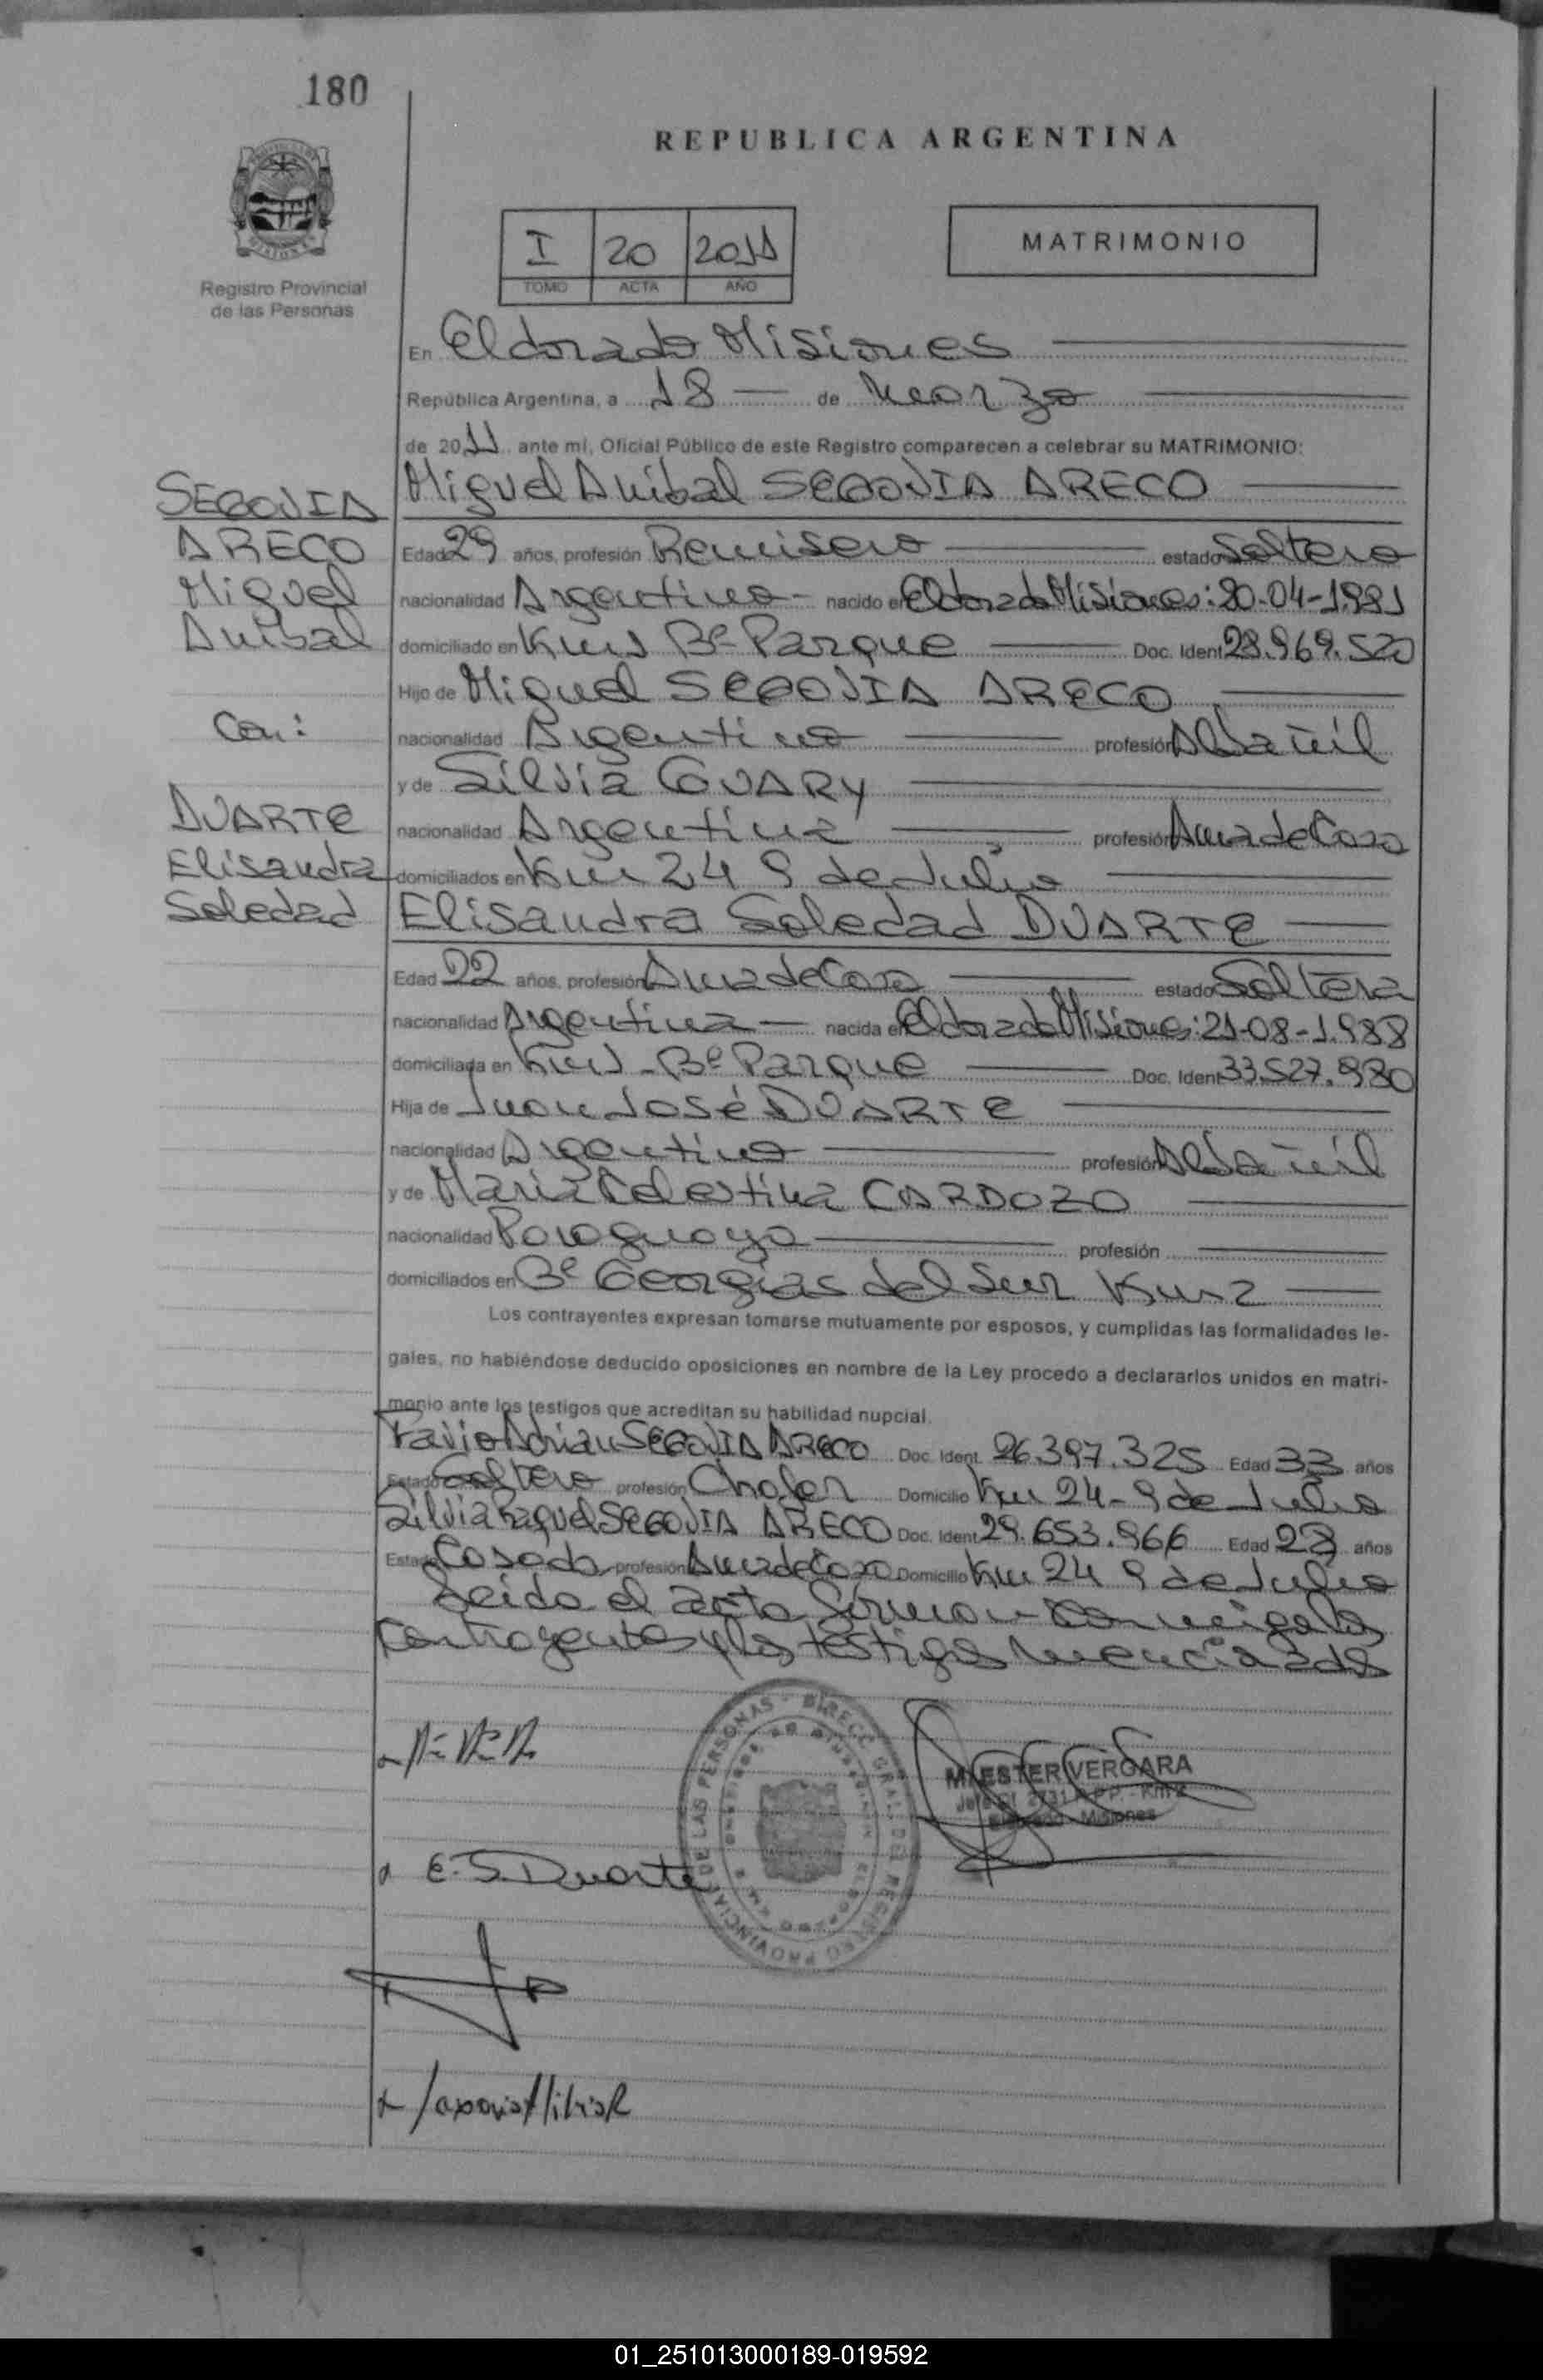 180
REPUBLICA ARGENTINA
I 20 2011
TOMO ACTA AÑO
MATRIMONIO
Registro Provincial
de las Personas
En Eldorado Misiones
República Argentina, a 18 de Marzo
de 2011 ante mí, Oficial Público de este Registro comparecen a celebrar su MATRIMONIO:
SEGOVIA
ARECO
Miguel
Anibal
Con:
DUARTE
Elisandra
Soledad
Miguel Anibal SEGOVIA ARECO
Edad 29 años, profesión Remisero estado Soltero
nacionalidad Argentino nacido en Eldorado Misiones: 20-04-1.981
domiciliado en Km 1 Bº Parque Doc. Ident 28.969.520
Hijo de Miguel SEGOVIA ARECO
nacionalidad Argentino profesión Albañil
y de Silvia GUARY
nacionalidad Argentina profesión Ama de Casa
domiciliados en Km 24 9 de Julio
Elisandra Soledad DUARTE
Edad 22 años, profesión Ama de Casa estado Soltera
nacionalidad Argentina nacida en Eldorado Misiones: 21-08-1.988
domiciliada en Km 1 - Bº Parque Doc. Ident 33.527.980
Hija de Juan José DUARTE
nacionalidad Argentino profesión Albañil
y de Maria Celestina CARDOZO
nacionalidad Paraguaya profesión
domiciliados en Bº Georgias del Sur Km 2
Los contrayentes expresan tomarse mutuamente por esposos, y cumplidas las formalidades le-
gales, no habiéndose deducido oposiciones en nombre de la Ley procedo a declararlos unidos en matri-
monio ante los testigos que acreditan su habilidad nupcial.
Favio Adrian SEGOVIA ARECO Doc. Ident. 26.397.325 Edad 33 años
Estado Soltero profesión Chofer Domicilio Km 24 - 9 de Julio
Silvia Raquel SEGOVIA ARECO Doc. Ident 29.653.966 Edad 28 años
Estado Casada profesión Ama de Casa Domicilio Km 24 9 de Julio
Leida el acta firman conmigo los
contrayentes y los testigos mencionados
DIRECC. GRAL. DEL REGISTRO PROVINCIAL DE LAS PERSONAS
ESTER VERGARA
Misiones
E. S. Duarte
01_251013000189-019592